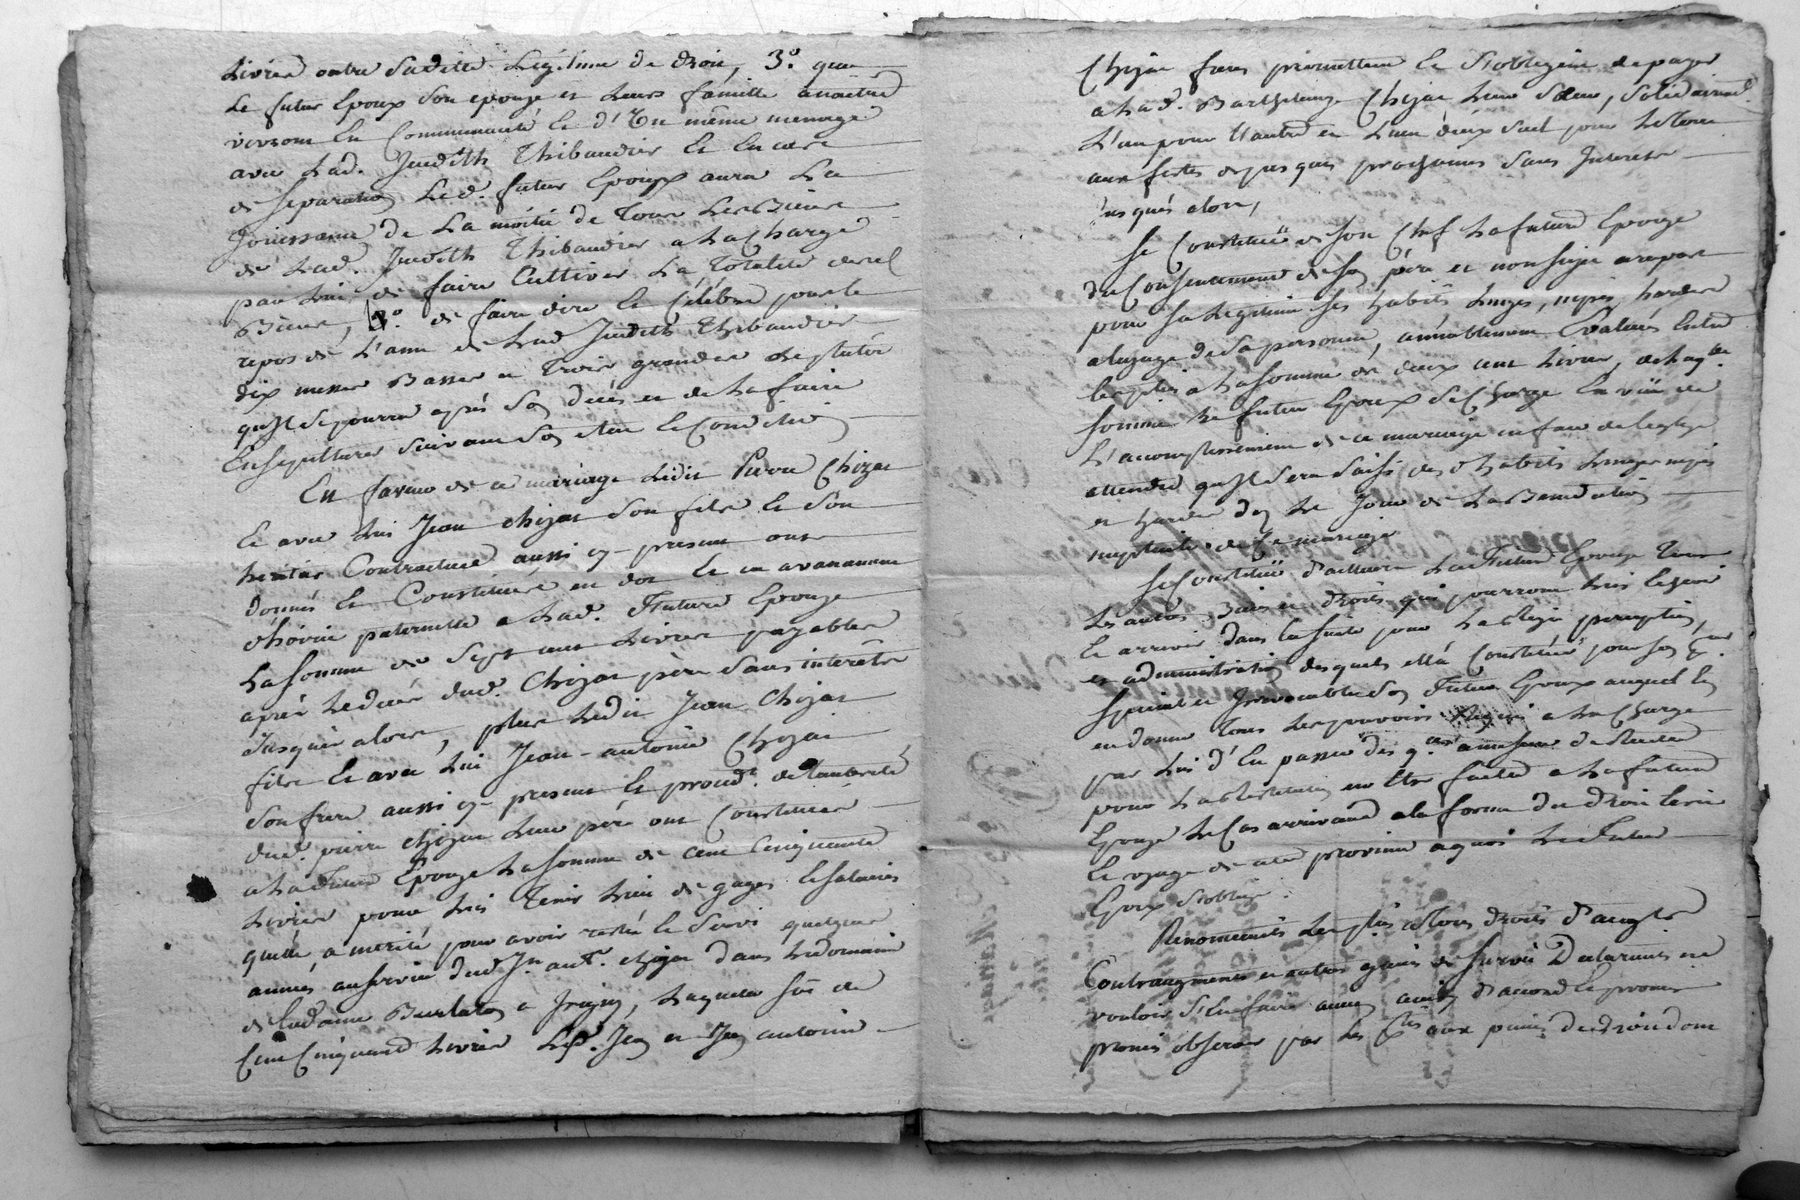 Livres outre Sadette Légitime de droit, 3.º que
Le futur Epoux Son epouze et Leurs famille a naitre
vivront En Communauté Et d'Un même menage
avec Lad. Judith Thibaudier Et En cas
de Separation Led. futur Epoux aura La
Jouissance de La moitié de Tous Les Biens
de Lad. Judith Thibaudier a La Charge
par Lui de faire Cultiver La Totalité desd
Biens, de faire dire Et Célébrer pour le
repos de L'ame de Lad Judith Thibaudier
dix messes Basses et Trois grandes
après Son décès et de La faire
Ensepulturer Suivant Son etat Et Condition
En faveur de ce mariage Ledit Pierre Chizat
Et avec Lui Jean Chizat Son fils Et Son
heritier Contractuel aussi cy-present ont
donnés Et Constitués en dot Et en avancement
d'hoirie paternelle a Lad. Future Epouze
La Somme de Sept cent Livres payables
après Le décès dud. Chizat père Sans interêts
Jusques alors, plus Ledit Jean Chizat
fils Et avec Lui Jean-antoine Chizat
Son frere aussi cy-present Et de L'autorité
dud. pierre Chizat Leur père ont Constitués
a La Future Epouze La Somme de Cent Cinquante
Livres pour Lui Tenir Lieu de gages Et Salaires
quelle a merité pour avoir resté Et Servi quelques
années au Service dud Jn. ant. Chizat dans Le domaine
de Madame a Laquelle Sme de
Cent Cinquante Livres Lesd. Jean et Jean antoine
Chizat freres promettent Et S'obligent de payer
a Lad. Chizat Leur Sœur, Solidairement
L'un pour L'autre un d'eux Seul pour Le Tout
aux fetes de pasques prochaines Sans Interets
Jusques alors,
Se Constitue de Son Chef La future Epouze
du Consentement de Son père et non Sujet a raport
pour Sa Legitime Ses habits Linges, nipes, hardes
a L'uzage de Sa personne, amiablement Evalués Entre
Les parties a La Somme de deux cent Livres, de Laq.le
Somme Le futur Epoux Se Charge En vüe de
L'accomplissement de ce mariage en face de l'eglize
attendu qu'Il Sera Saisi des habits Linges nipes
et hardes Le Jour de La Benediction
nuptiale de Ce mariage
Se Constitue d'ailleurs La Future Epouze Tous
Les autres Biens et droits qui pourront Lui Echeoir
Et arriver dans La Suite pour La Regie perception,
et administration desquels ella Constitué pour Son
Special et Irrevocable Son Futur Epoux auquel Elle
en donne Tous Les pouvoirs Requis a La Charge
par Lui d'En passer des
pour La restitution en Etre faite a La future
Epouze Le Cas arrivant a La forme du droit Ecrit
Et uzage de cette province a quoi Le Futur
Epoux S'oblige.
Renoncants Les parties a Tous droits d'augment
Contraugment et autres gains de Survie Declarants ne
vouloir S'En faire aucun ainsi d'accord Et promis
promis observer par Les aux peines de droit dont